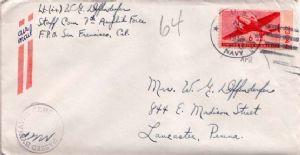 Lt(jg) W. G. Diffenderfer
Staff Com 7th Amphib Force
F.P.O. San Francisco, Cal.
64
air mail
NAVY
APR
Mrs. W. G. Diffenderfer
844 E. Madison Street
Lancaster, Penna.
PASSED BY